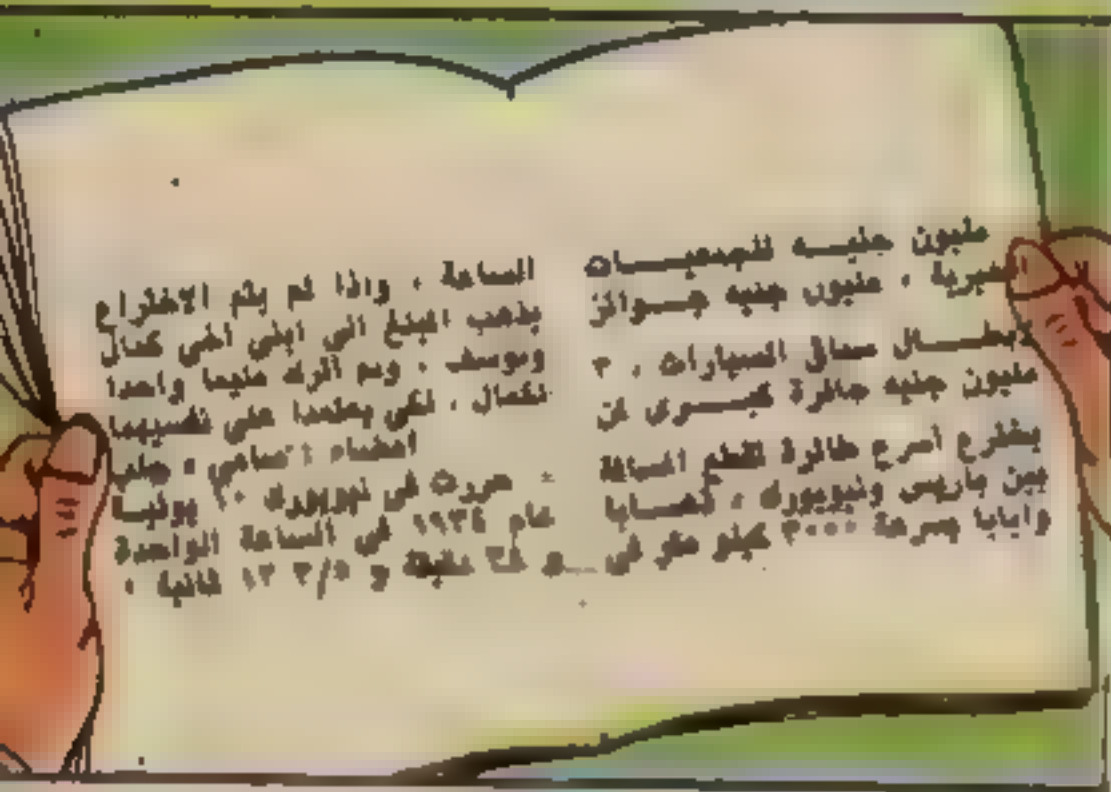 مليون جنيــه للجمعيــــات
الخيرية ، مليون جنيه جــوائز
لابطــــال سباق السيارات ، ٢
مليون جنيه جائزة كبــرى لمن
يخترع اسرع طائرة تقطع المسافة
بين باريس ونيويورك ، ذهــابا
وايابا بسرعة ٣٠٠٠ كيلو متر فى
الساعة ، واذا لم يتم الاختراع
يذهب المبلغ الى ابنى اخى كمال
ويوسف ، ولم اترك منهما واحدا
لكمال ، لكى يعتمدا على نفسيهما
امضاء :
حررت فى نيويورك
عام ١٩٣٤ فى الساعة الواحدة
و دقيقة و ١٣ ٣/٥ ثانية .